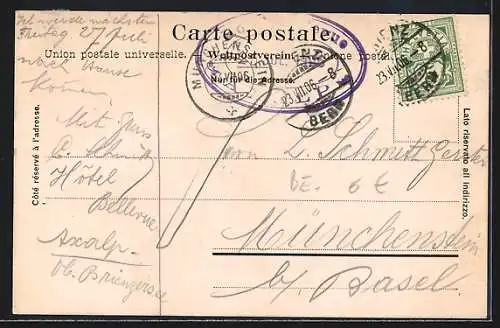 Carte postale
Union postale universelle. Weltpostverein. Unione postale
Nur für die Adresse.
Côté réservé à l'adresse.
Lato riservato all indirizzo.
Ich werde nächsten
Freitag 27 Juli
nach Hause
kommen.
Mit Gruss
C. Schmitt
Hôtel
Bellevue
Axalp
ob. Brienzersee
L. Schmitt
BE. 6 €
Münchenstein
b/ Basel
23.VII.06. - 8
BERN
23.VII.06 - 8